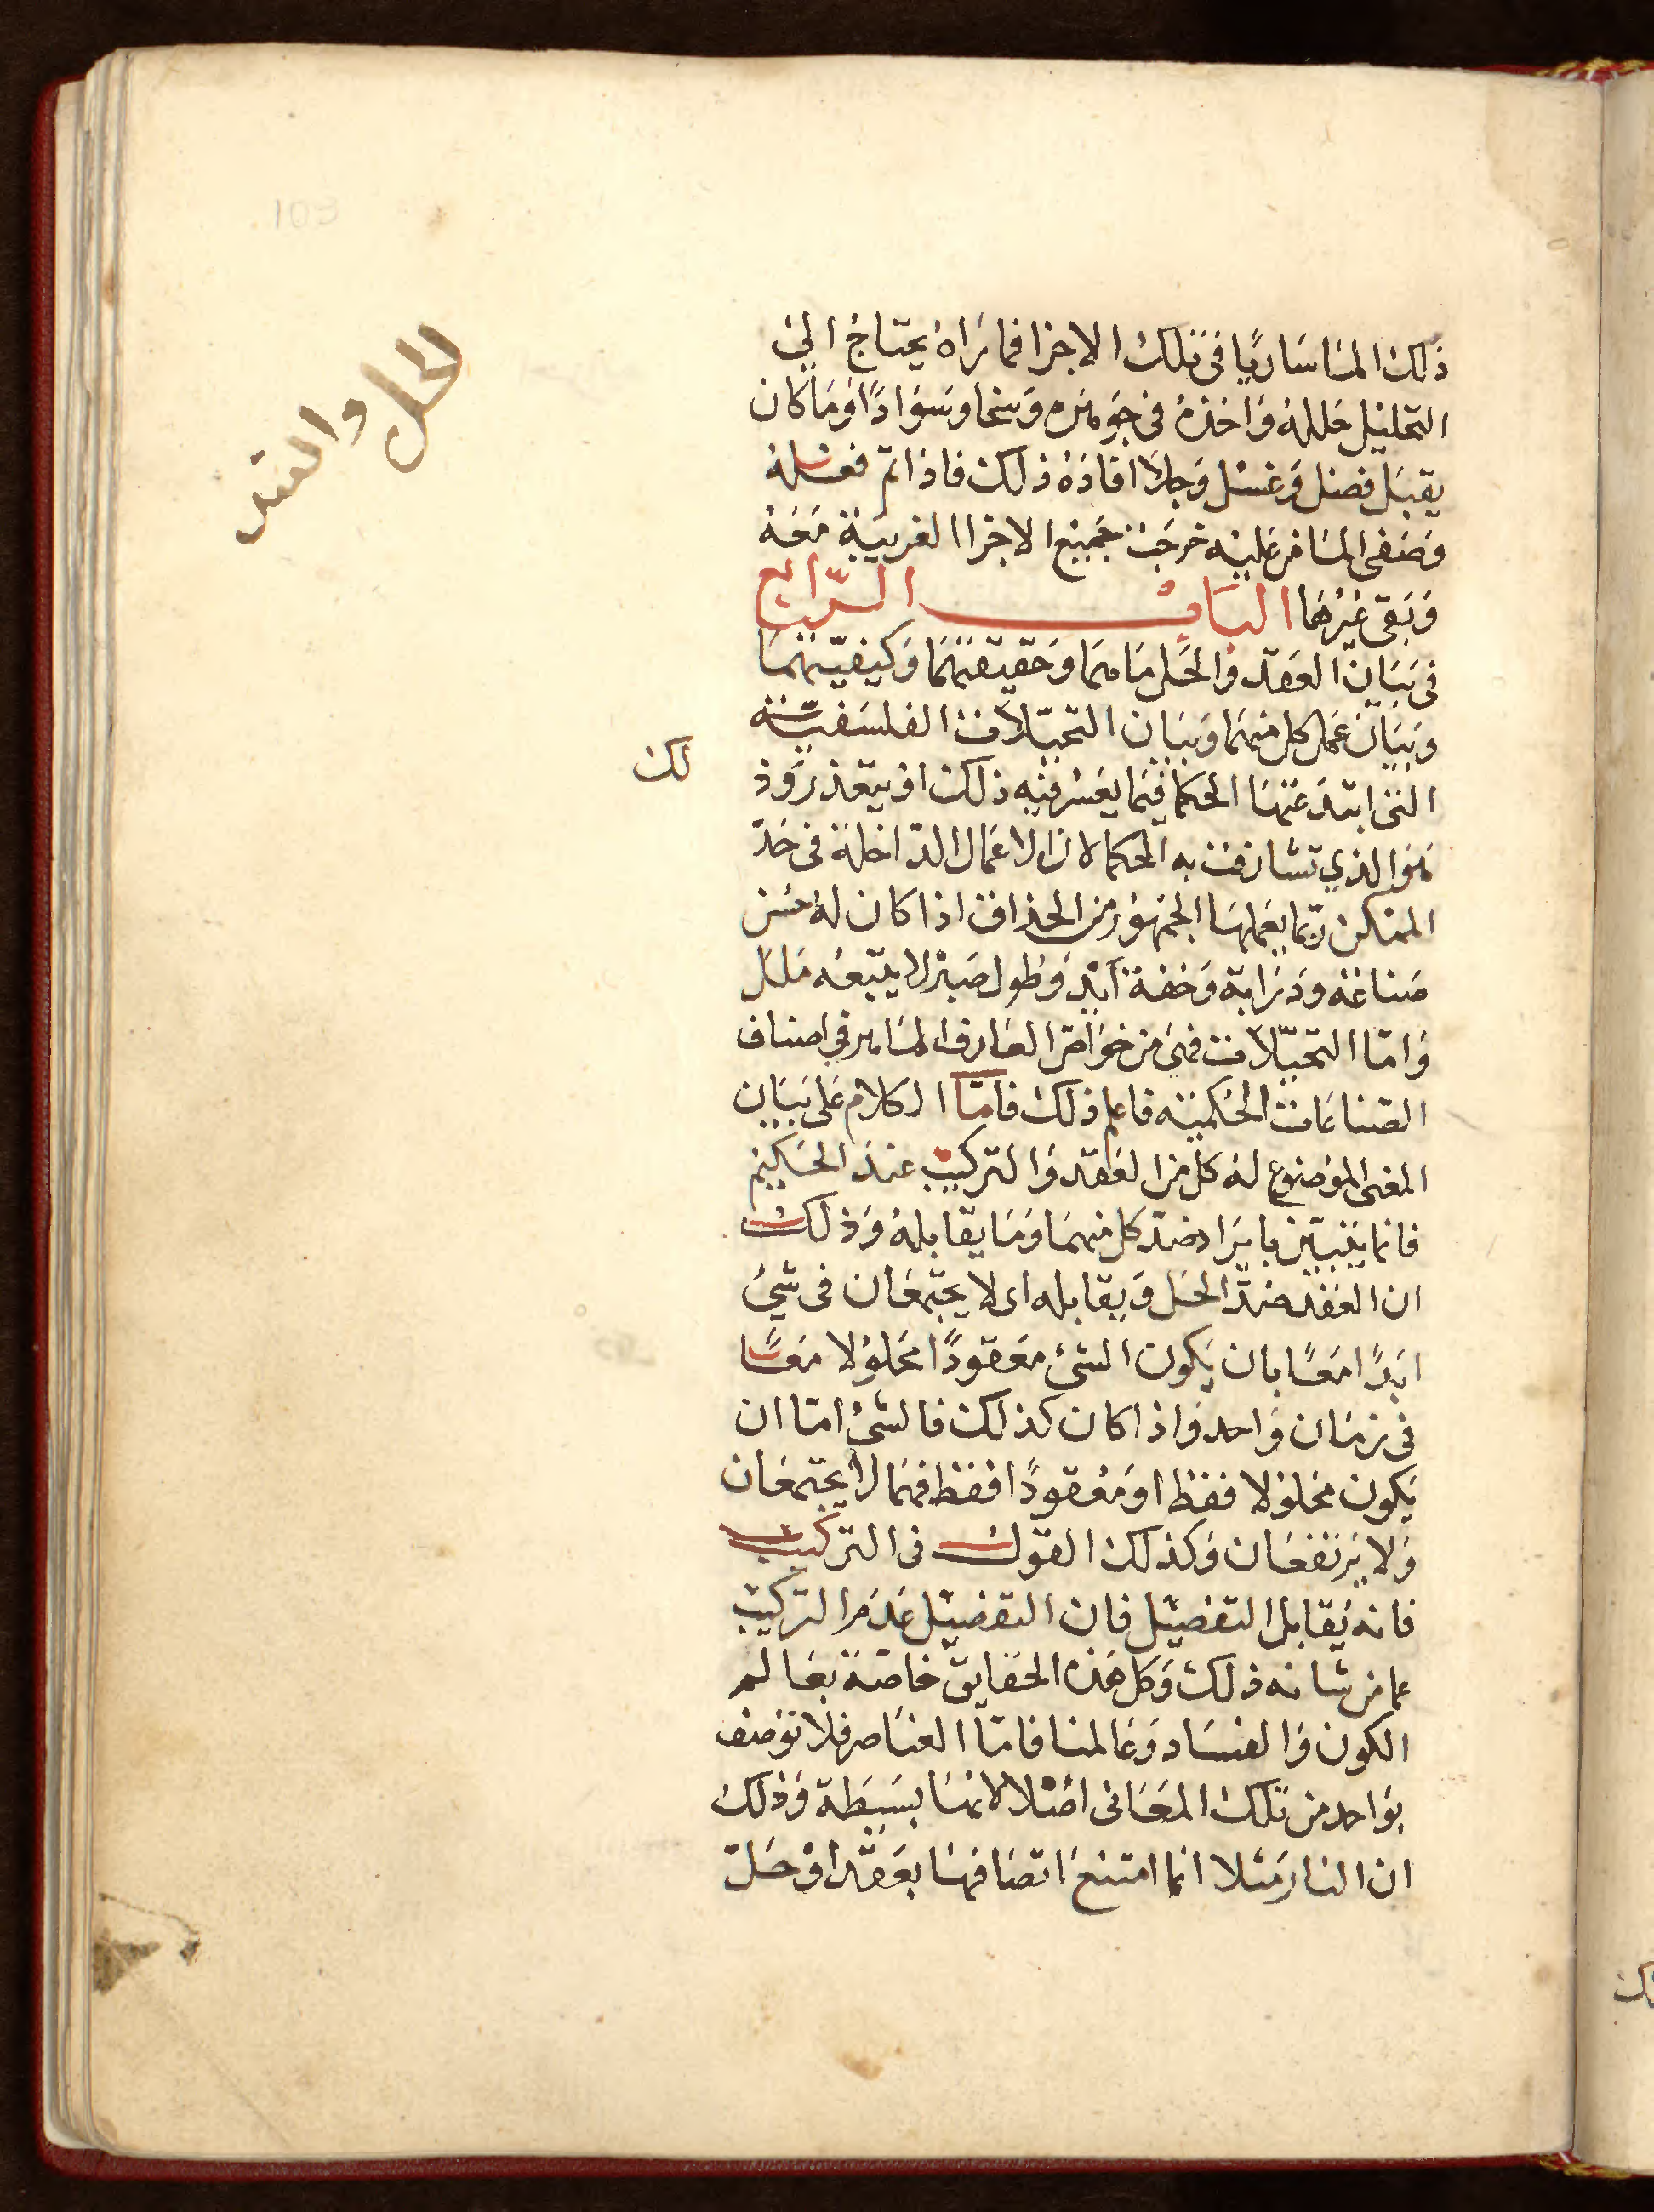 ذلك الماساريا فى تلك الاجزا فما تراه يحتاج الى
التحليل حلله واخذه فى جوهره وسخا وسوادا وما كان
يقبل فصل وغسل وجلا افاده ذلك فاذا تم فعله
وصفى المسافر عليه خرجت جميع الاجزا الغريبة معه
وبقى غيرها الباب الرابع
فى بيان العقد والحل ماهما وحقيقتهما وكيفيتهما
وبيان عمل كل منهما وبيان التحيلات الفلسفية
التى ابتدعتها الحكما فيما يعسر فيه ذلك او يتعذر وذ
لك
هو الذي تشارفت به الحكما لان الاعمال الداخلة فى حد
الممكن ربما يعملها الجمهور من الحذاق اذا كان له حسن
صناعة ودراية وخفة ايد وطول صبر لا يتبعه ملل
واما التحيلات فهى من خواص العارف الماهر في اصناف
الصناعات الحكمية فاعلم ذلك فاما الكلام على بيان
المعنى الموضوع له كل من العقد والتركيب عند الحكيم
فانما يتبين بايراد ضد كل منهما وما يقابله وذلك
ان العقد ضد الحل ويقابله اى لا يجتمعان فى شئ
ابدا معا بان يكون الشئ معقودا محلولا معا
فى زمان واحد واذا كان كذلك فالشئ اما ان
يكون محلولا فقط او معقودا فقط فهما لا يجتمعان
ولا يرتفعان وكذلك القول فى التركيب
فانه يقابل التفصيل فان التفصيل عدم التركيب
عما من شانه ذلك وكل هذه الحقايق خاصة بعالم
الكون والفساد وعالمنا فاما العناصر فلا توصف
بواحد من تلك المعانى اصلا لانها بسيطة وذلك
ان النار مثلا انما امتنع اتصافها بعقد او حل
الحل والعقد